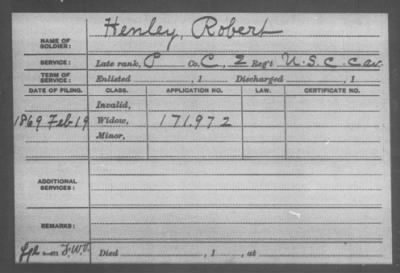 NAME OF SOLDIER: Henley, Robert
SERVICE: Late rank, P Co. C, 2 Reg't U.S.C. Cav.
TERM OF SERVICE: Enlisted , 1 Discharged , 1
DATE OF FILING. CLASS. APPLICATION NO. LAW. CERTIFICATE NO.
Invalid,
1869 Feb 19 Widow, 171,972
Minor,
ADDITIONAL SERVICES:
REMARKS:
Died , 1 , at